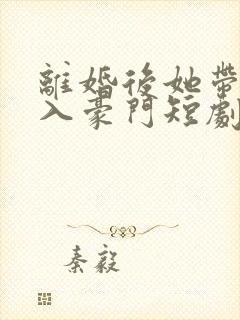 離婚後她帶
入豪門短劇
秦毅